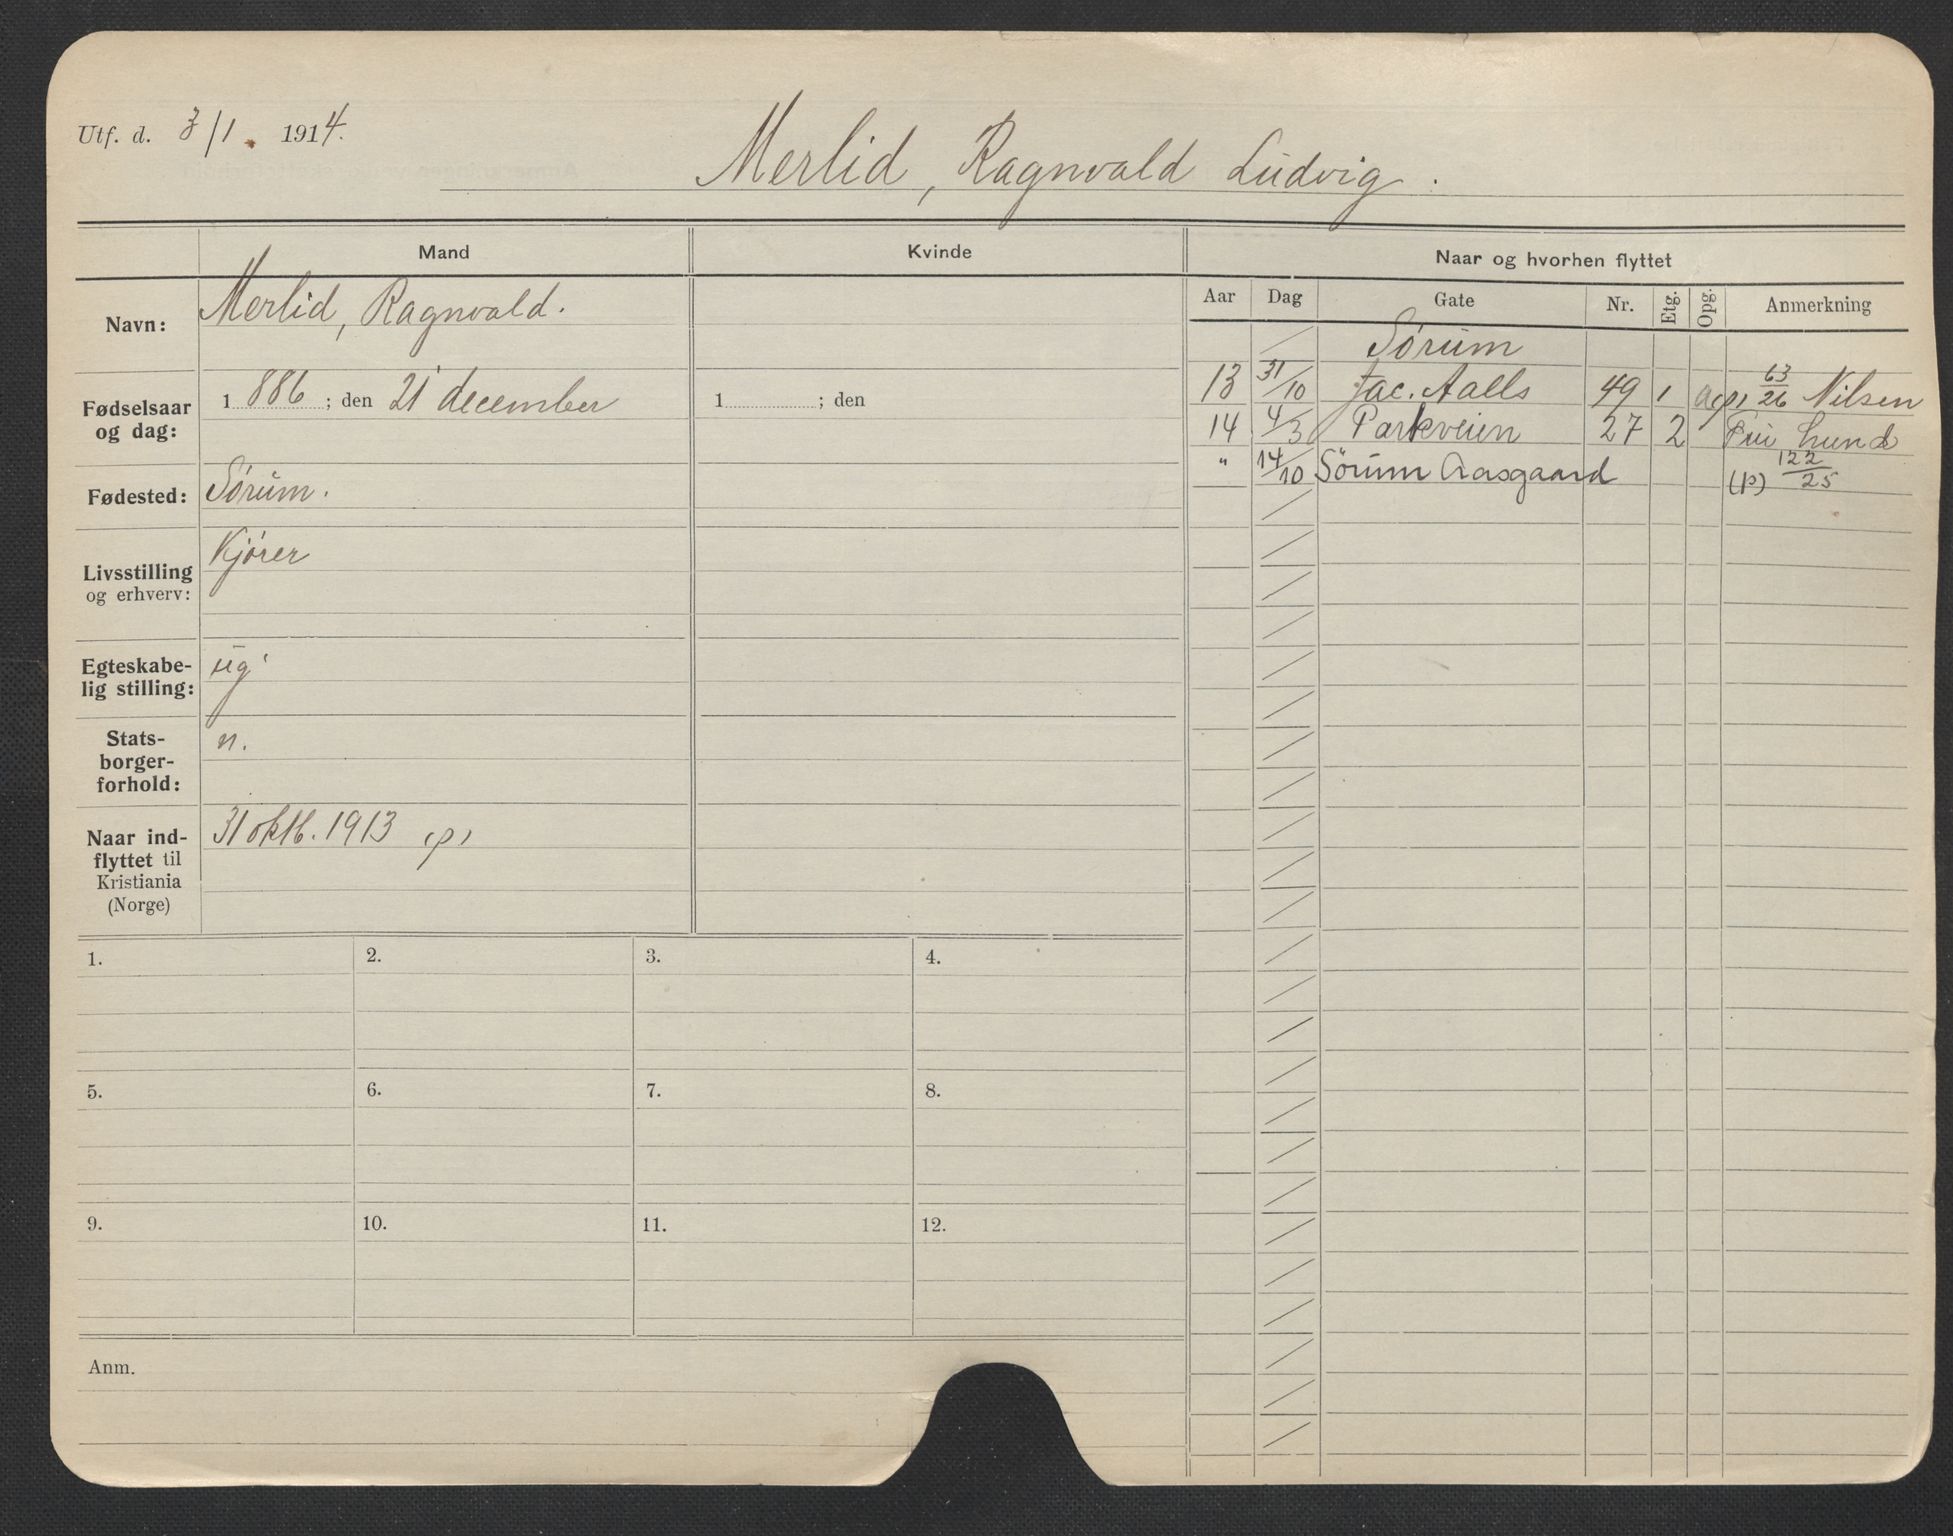 Utf. d. 3/1. 1914.
Merlid, Ragnvald Ludvig.
Mand
Kvinde
Naar og hvorhen flyttet
Navn: Merlid, Ragnvald.
Fødselsaar og dag: 1886; den 21 december
1 ; den
Fødested: Sørum.
Livsstilling og erhverv: Kjører
Egteskabe-
lig stilling: ug
Stats-
borger-
forhold: n.
Naar ind-
flyttet til
Kristiania
(Norge) 31 oktb. 1913 (p)
Aar Dag Gate Nr. Etg. Opg. Anmerkning
Sørum
13 31/10 Jac. Aalls 49 1 a (p) 63/26 Nilsen
14 4/3 Parkveien 27 2 Fru Lund
" 14/10 Sørum Aasgaard (p) 122/25
1. 2. 3. 4.
5. 6. 7. 8.
9. 10. 11. 12.
Anm.